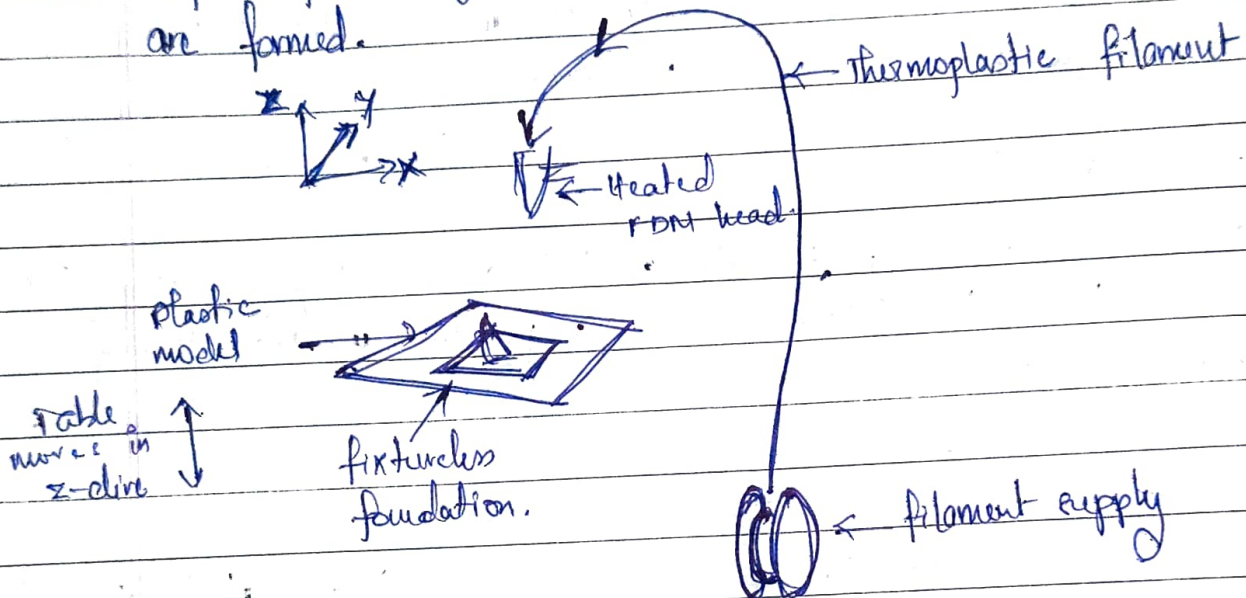 are formed.
Thermoplastic filament
Z
Y
X
Heated
FDM head.
plastic
model
Table
moves in
z-dirn
fixtureless
foundation.
filament supply